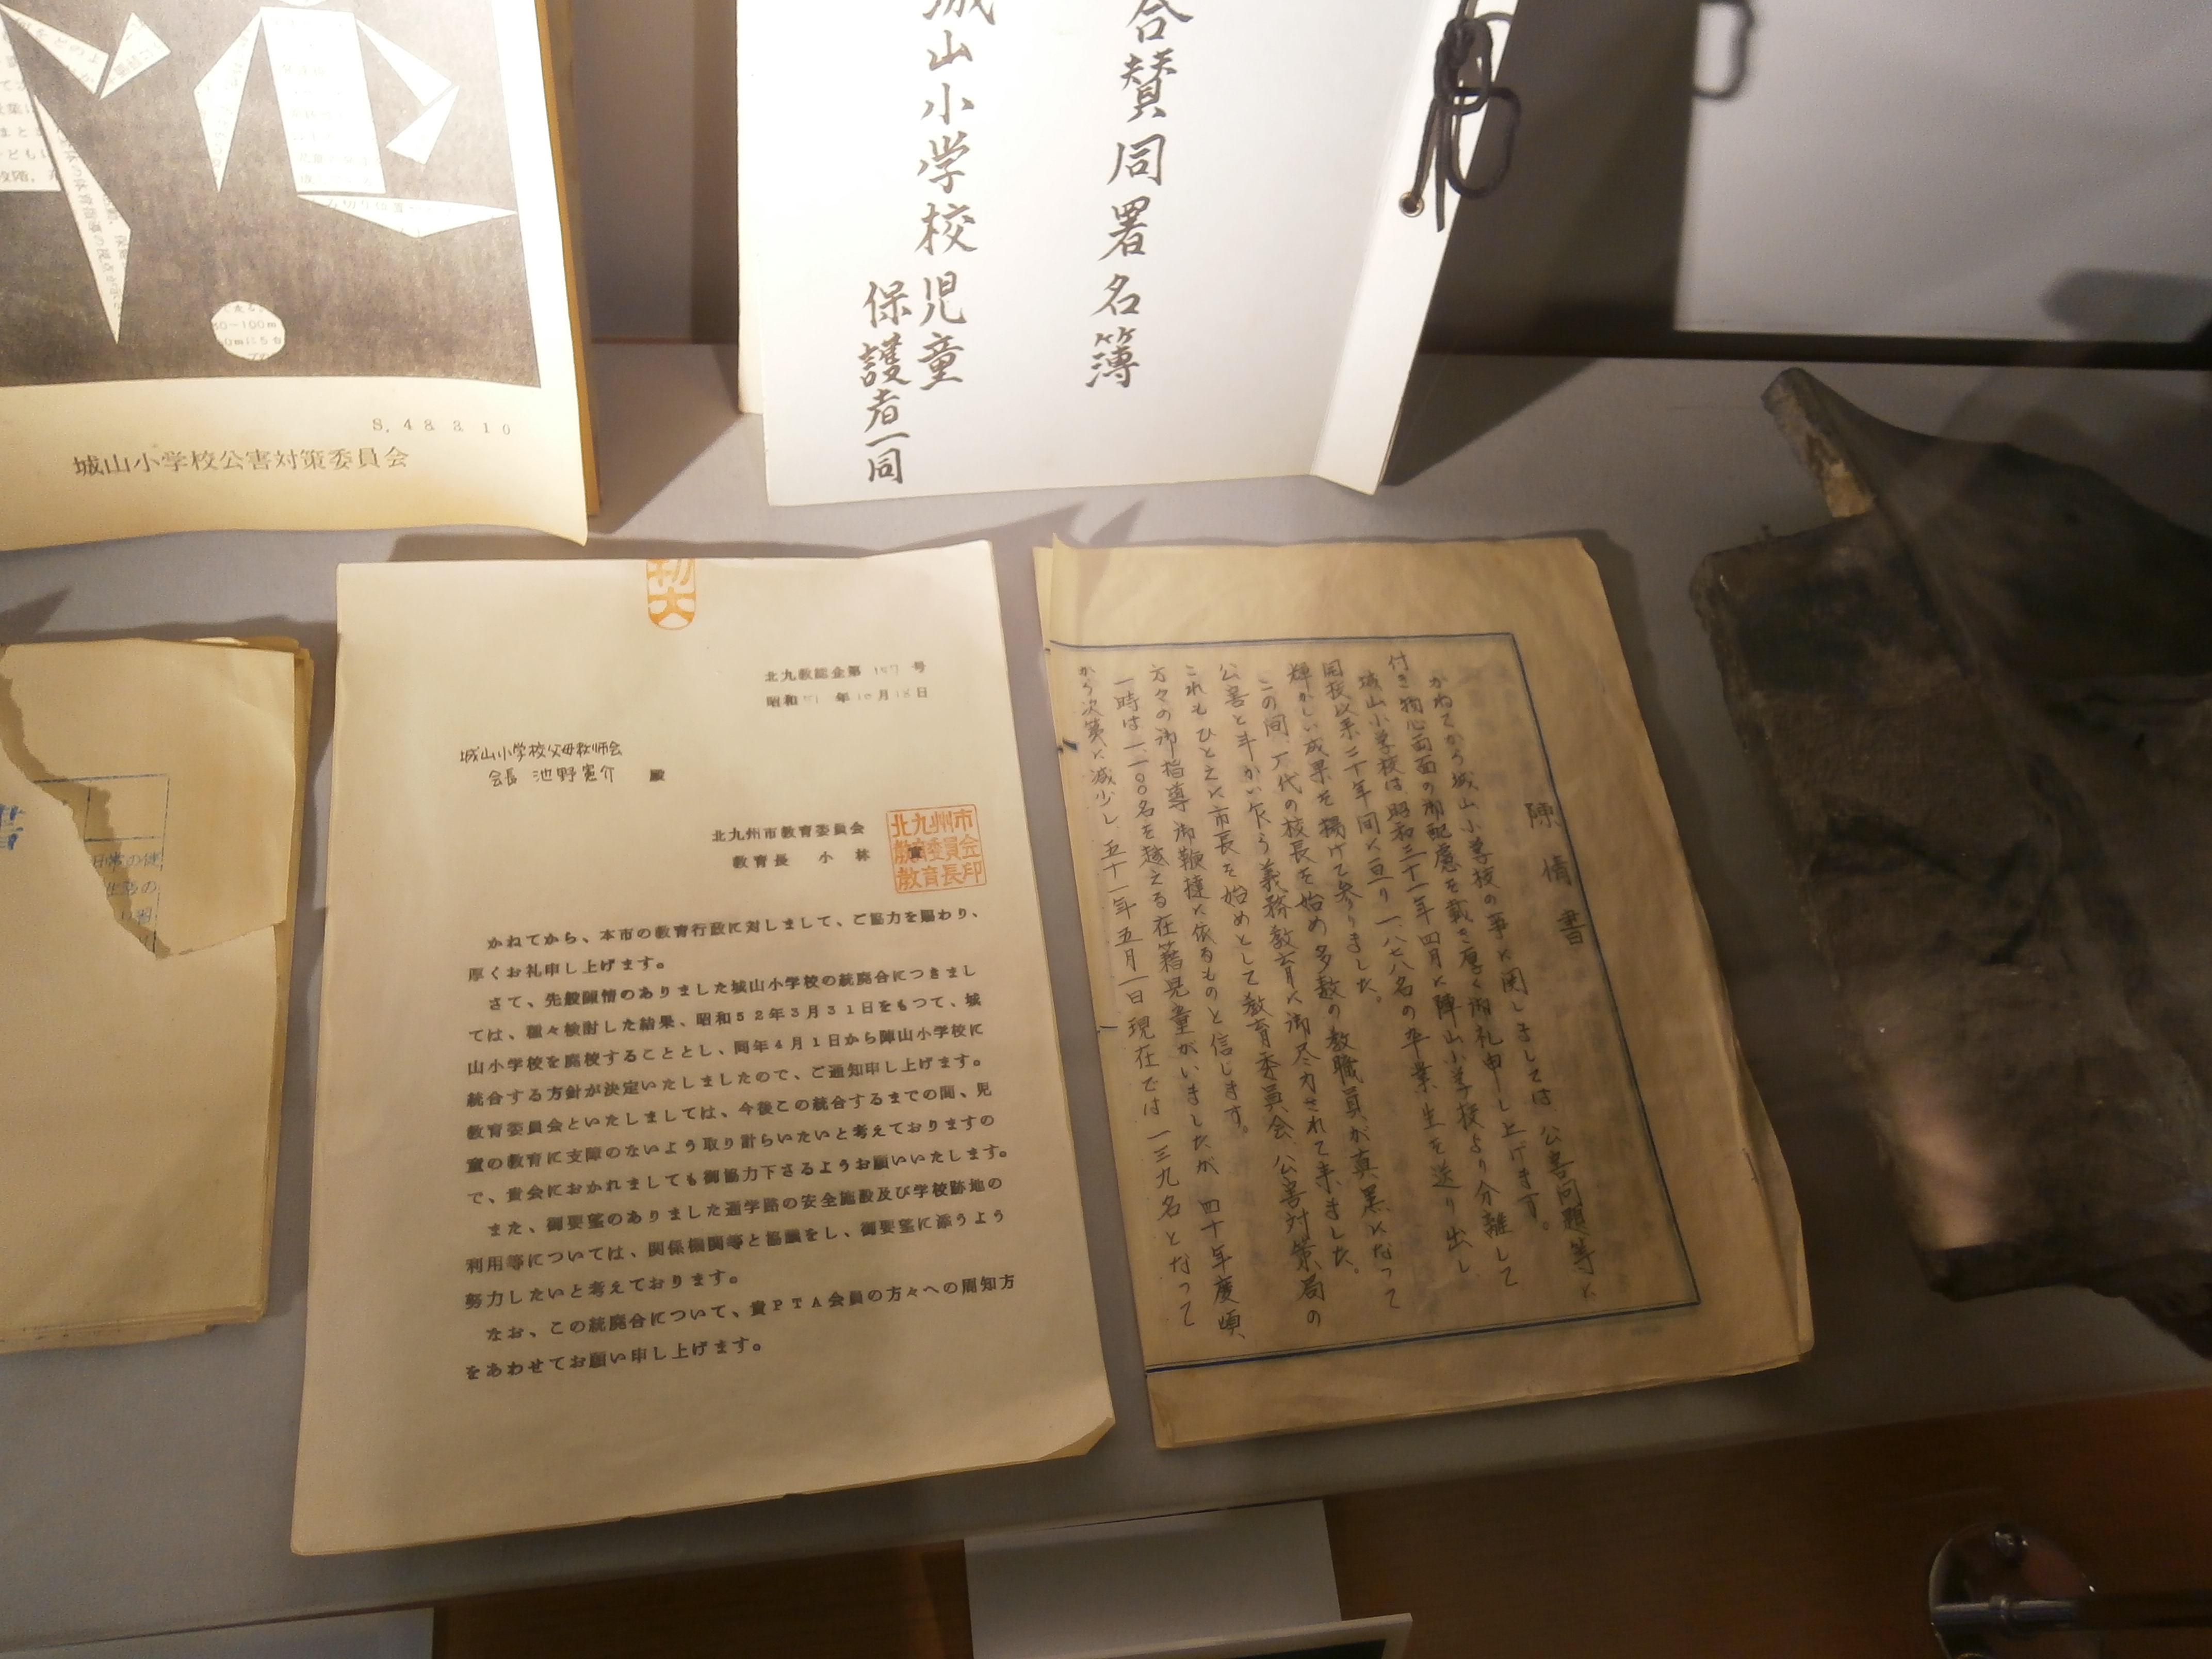 S. 48 3 10
城山小学校公害対策委員会
合賛同署名簿
城山小学校児童
保護者一同
北九教総企第 号
昭和51年10月18日
城山小学校父母教師会
会長 池野憲介 殿
北九州市教育委員会
教育長 小林
北九州市
教育委員会
教育長印
かねてから、本市の教育行政に対しまして、ご協力を賜わり、
厚くお礼申し上げます。
さて、先般陳情のありました城山小学校の統廃合につきまし
ては、種々検討した結果、昭和52年3月31日をもつて、城
山小学校を廃校することとし、同年4月1日から陣山小学校に
統合する方針が決定いたしましたので、ご通知申し上げます。
教育委員会といたしましては、今後この統合するまでの間、児
童の教育に支障のないよう取り計らいたいと考えておりますの
で、貴会におかれましても御協力下さるようお願いいたします。
また、御要望のありました通学路の安全施設及び学校跡地の
利用等については、関係機関等と協議をし、御要望に添うよう
努力したいと考えております。
なお、この統廃合について、貴PTA会員の方々への周知方
をあわせてお願い申し上げます。
陳情書
かねてから城山小学校の事に関しましては公害問題等に
付き物心両面の御配慮を載き厚く御礼申し上げます。
城山小学校は昭和三十一年四月に陣山小学校より分離して
開校以来二十年間に亘り一、八七八名の卒業生を送り出し
輝かしい成果を揚げて参りました。
この間、六代の校長を始め多数の教職員が真黒になって
公害と斗かい乍ら義務教育に御尽力されて来ました。
これもひとえに市長を始めとして教育委員会、公害対策局の
方々の御指導御鞭撻に依るものと信じます。
一時は一、一〇〇名を越える在籍児童がいましたが四十年度頃、
から次第に減少し五十一年五月一日現在では一三九名となって